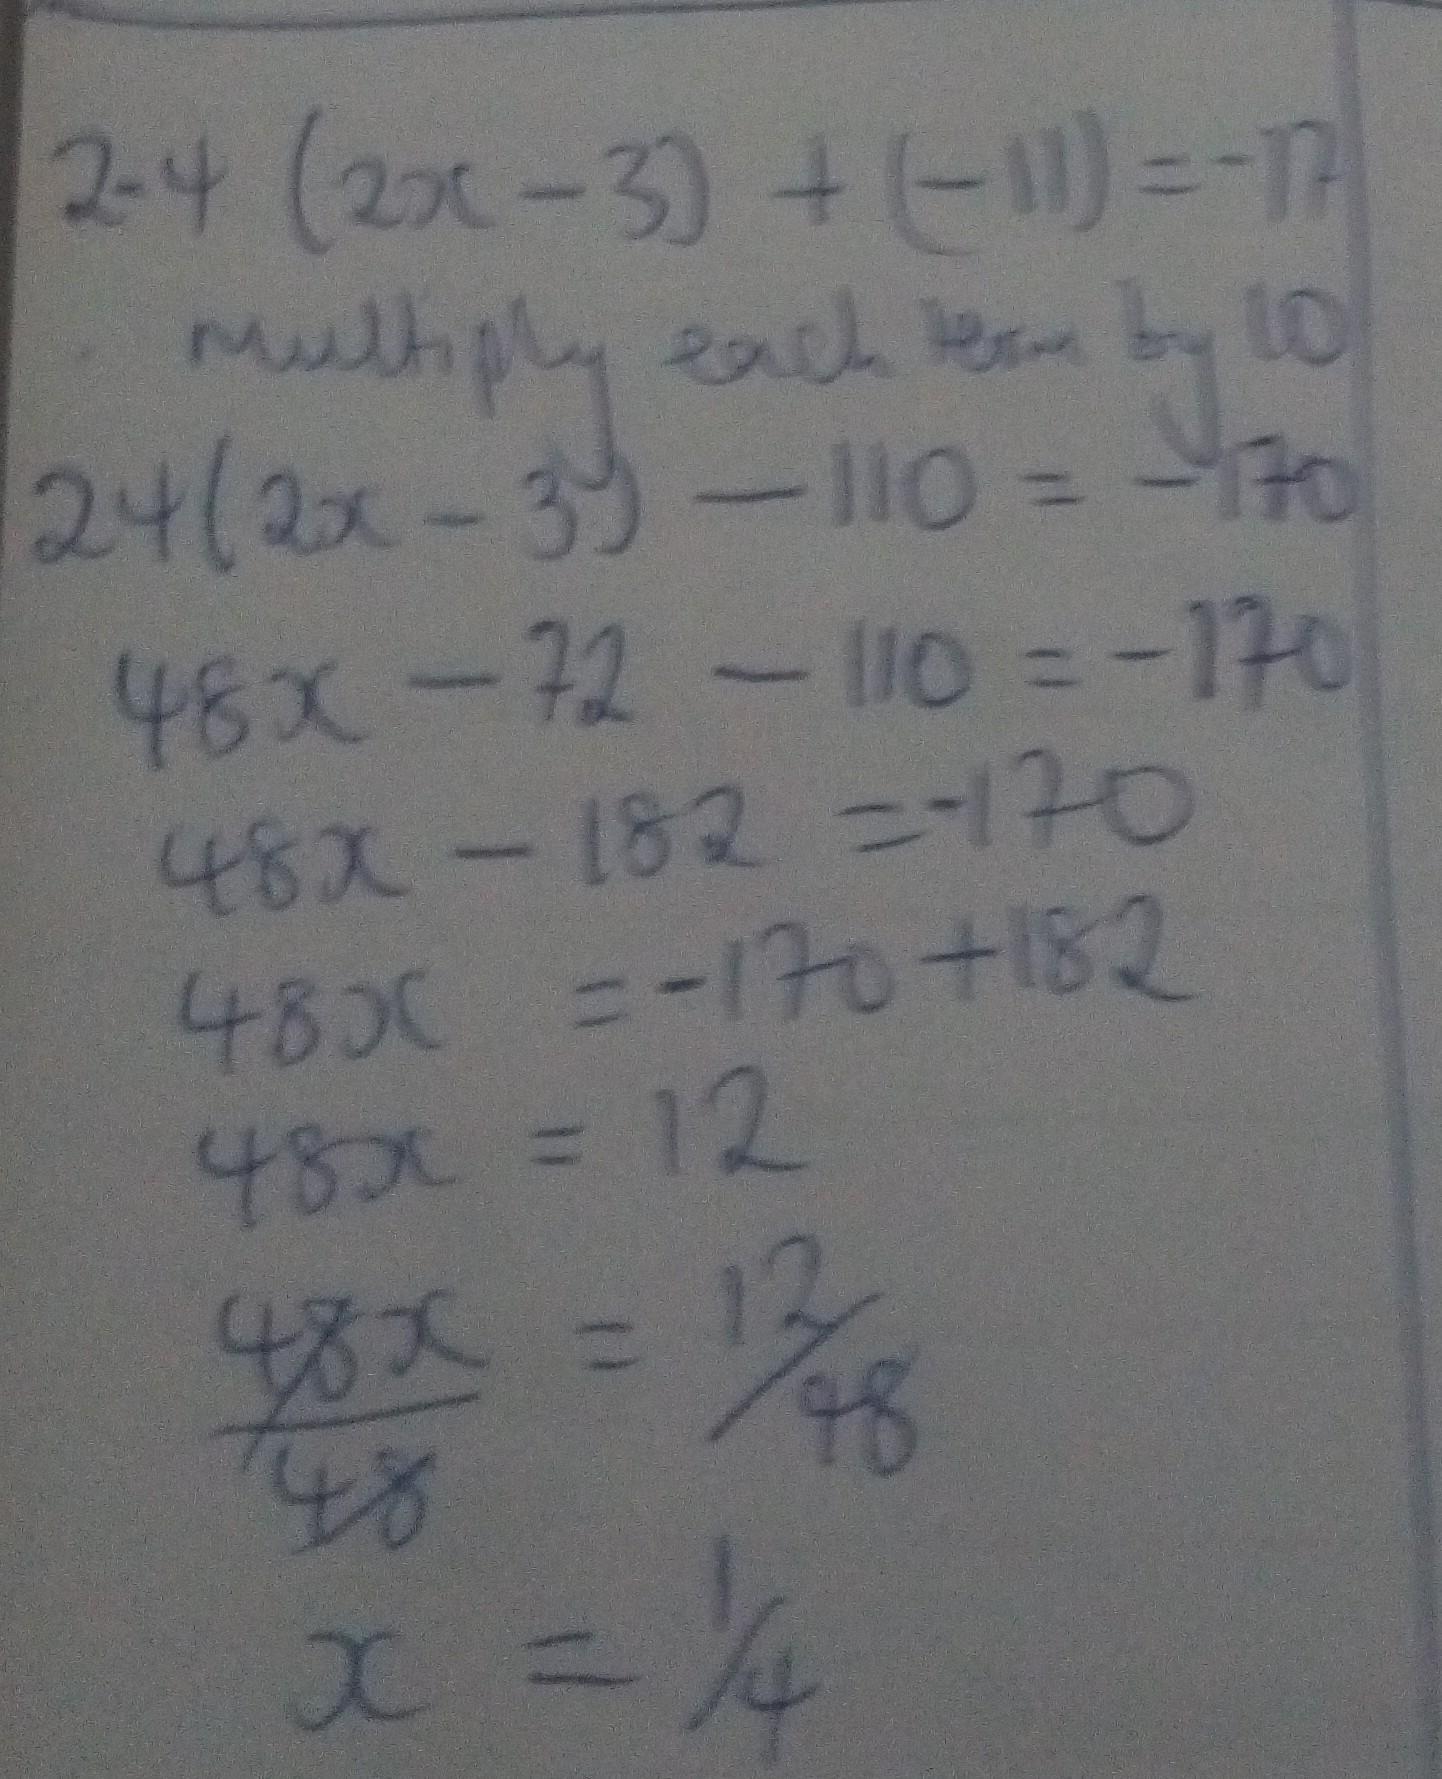 2.4 (2x - 3) + (-11) = -17
multiply each term by 10
24(2x - 3) - 110 = -170
48x - 72 - 110 = -170
48x - 182 = -170
48x = -170 + 182
48x = 12
48x/48 = 12/48
x = 1/4